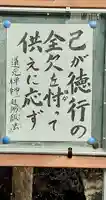 己が徳行の
全欠を忖って
供えに応ず
道元禅師 赴粥飯法